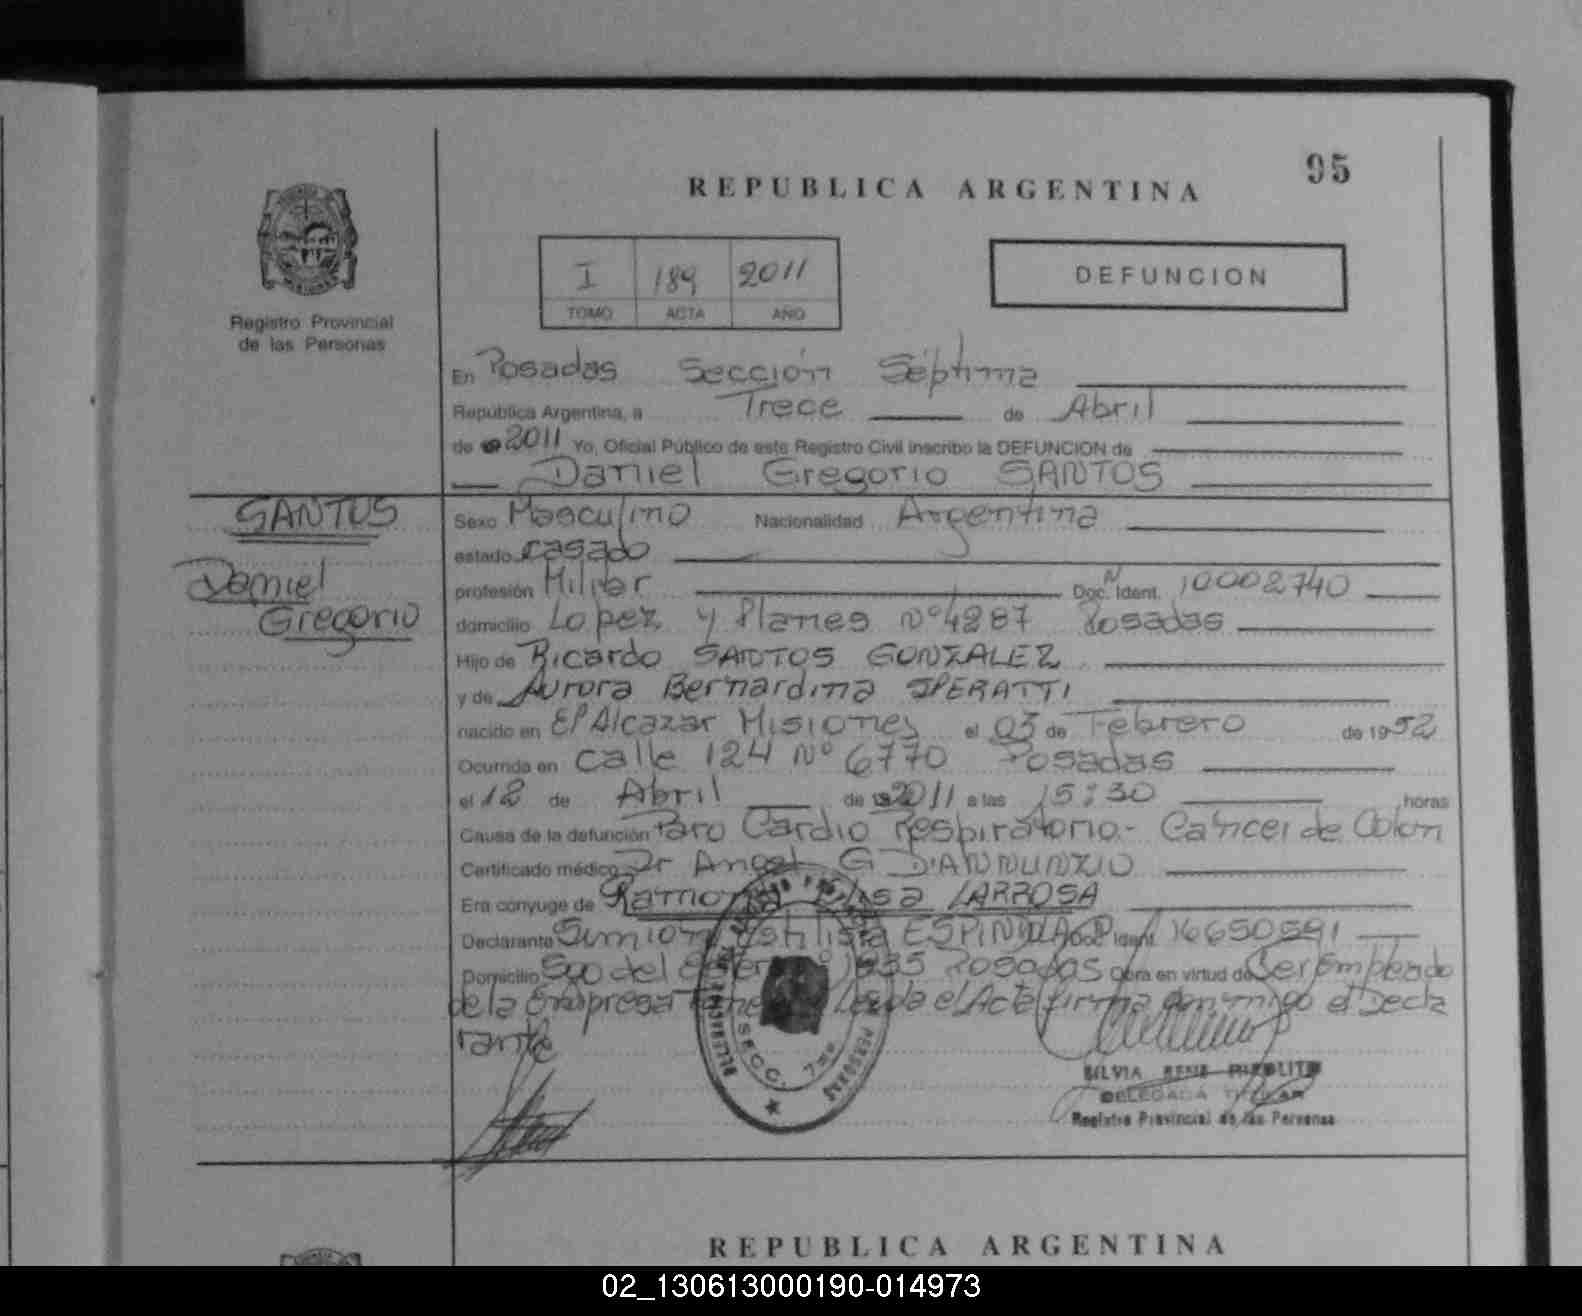 95
REPUBLICA ARGENTINA
I 189 2011
TOMO ACTA AÑO
DEFUNCION
Registro Provincial
de las Personas
En Posadas Sección Séptima
República Argentina, a Trece de Abril
de 2011 Yo, Oficial Público de este Registro Civil inscribo la DEFUNCION de
Daniel Gregorio SANTOS
SANTOS
Daniel
Gregorio
Sexo Masculino Nacionalidad Argentina
estado casado
profesión Militar Doc. Ident. N 10002740
domicilio Lopez y Planes Nº 4287 Posadas
Hijo de Ricardo SANTOS GONZALEZ
y de Aurora Bernardina SPERATTI
nacido en El Alcazar Misiones el 03 de Febrero de 1952
Ocurrida en calle 124 Nº 6770 Posadas
el 12 de Abril de 2011 a las 15:30 horas
Causa de la defunción Paro Cardio Respiratorio.- Cancer de Colon
Certificado médico Dr Angel G D'ANNUNZIO
Era conyuge de Ramona Elisa LARROSA
Declarante ESPINDOLA Doc. Ident. 16650591
Domicilio 1935 Posadas Obra en virtud de Ser Empleado
de la Empresa Leida el Acta firma conmigo el Decla
rante
SECC. 7ma
PERSONAS
SILVIA RENE HIPOLITO
DELEGADA TITULAR
Registro Provincial de las Personas
REPUBLICA ARGENTINA
02_130613000190-014973